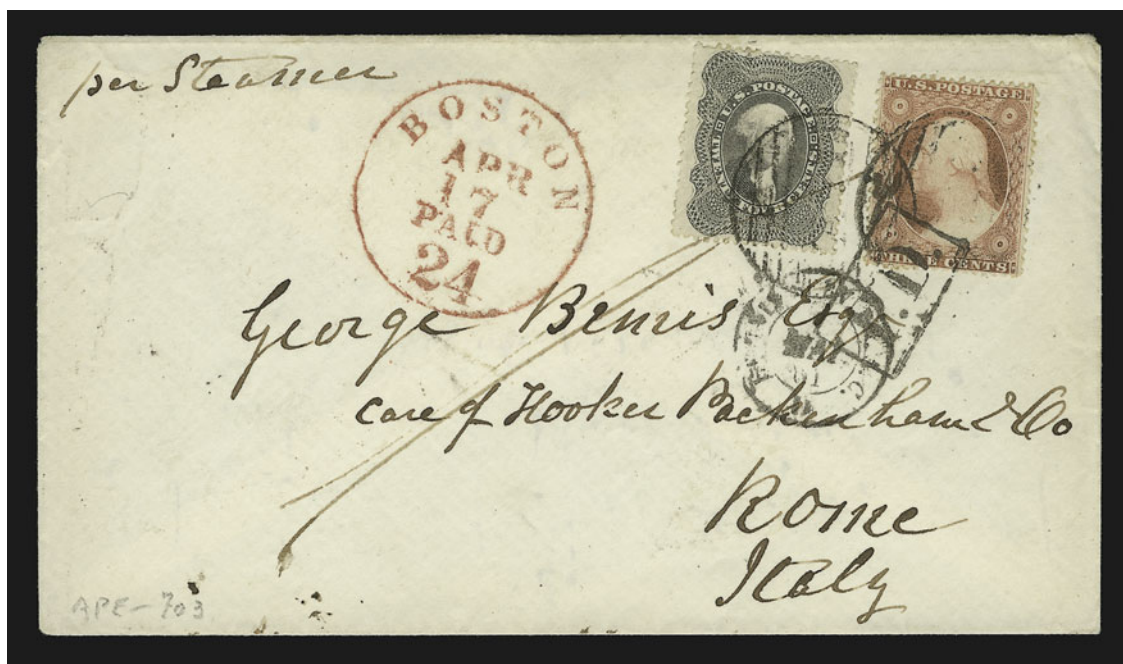 per Steamer
BOSTON
APR
17
PAID
24
U.S. POSTAGE
U.S. POSTAGE
THREE CENTS
P.D.
61
George Bemis Esq
care of Hooker Packenham & Co
Rome
Italy
APE-703